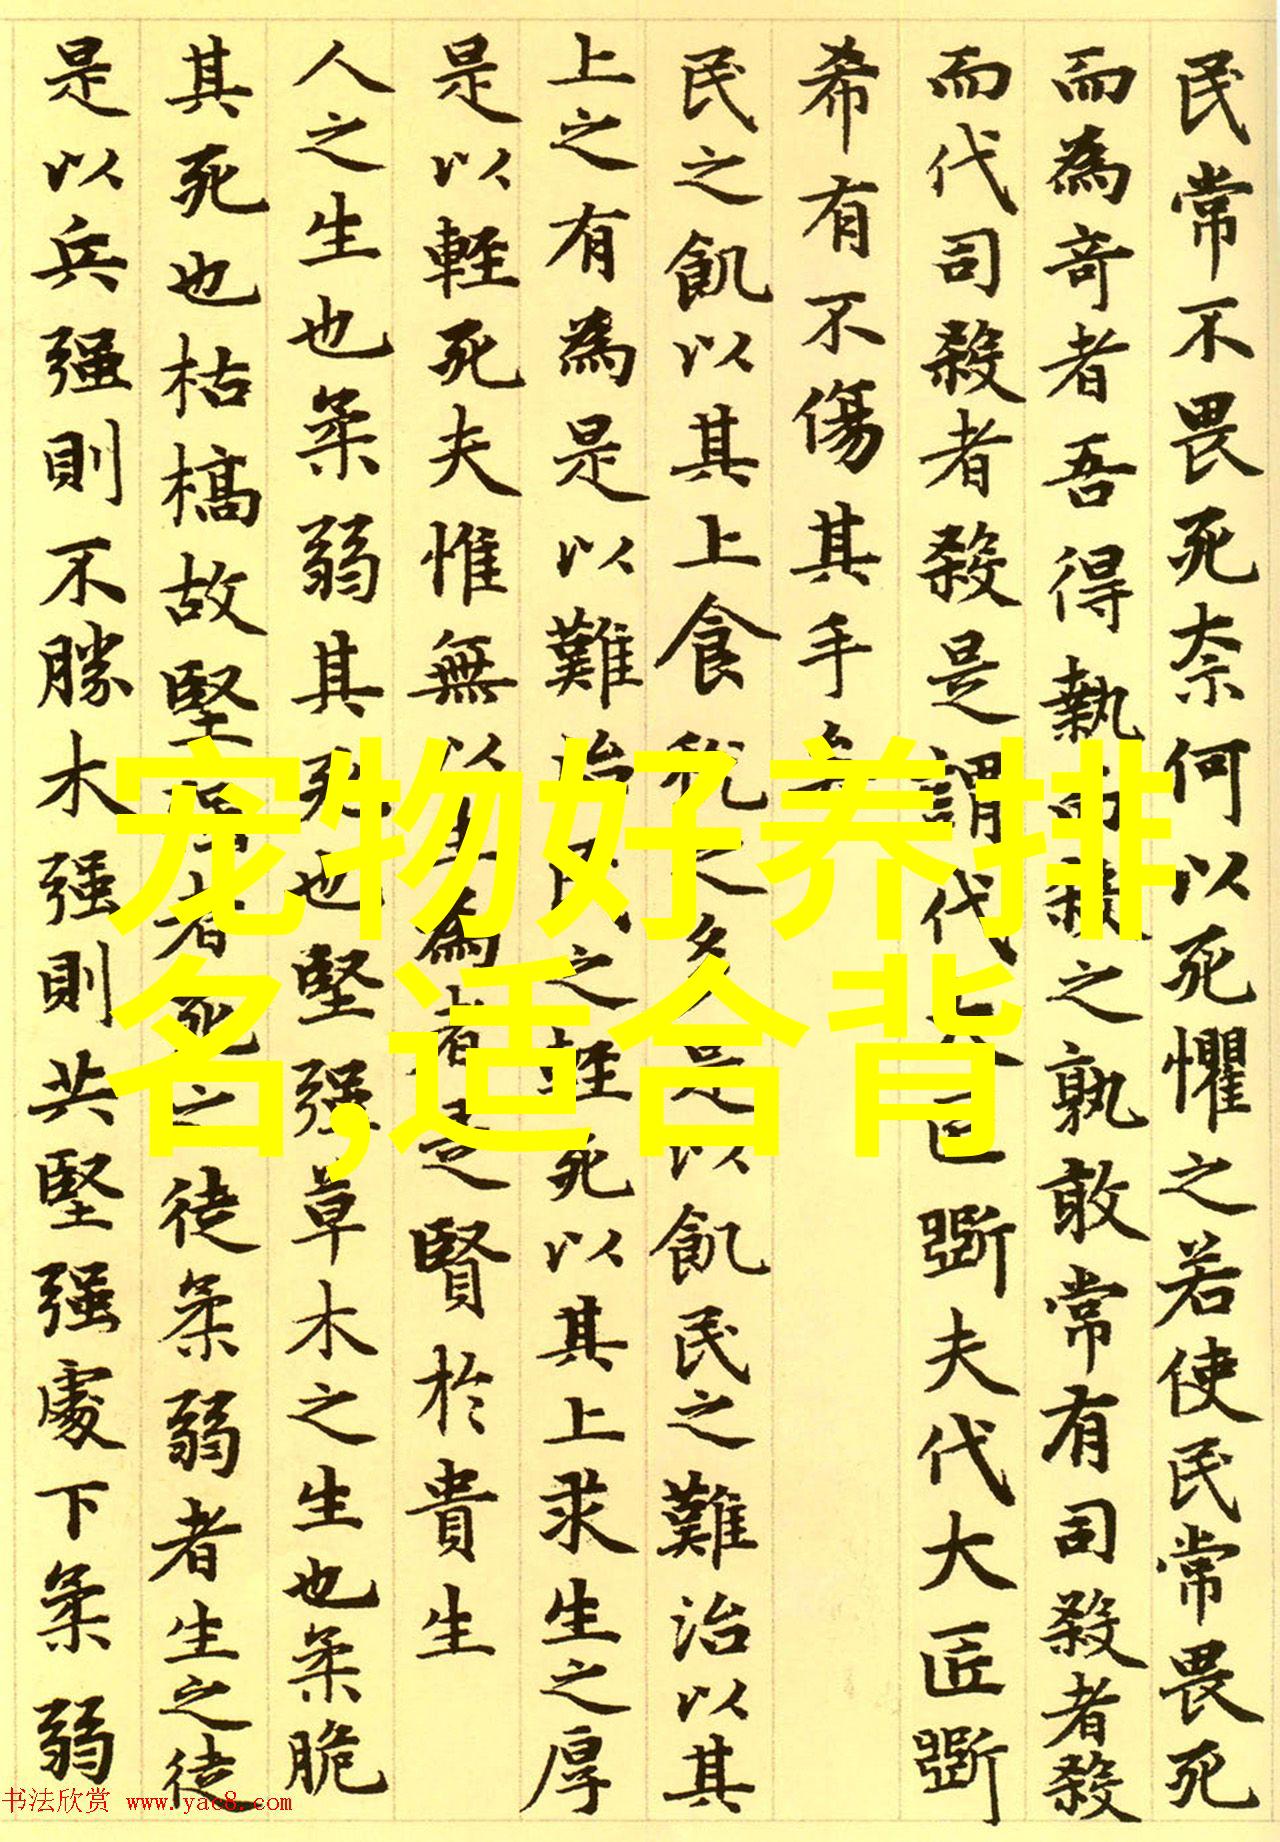 民常不畏死奈何以死懼之若使民常畏死
而為奇者吾得執而殺之孰敢常有司殺者殺
而代司殺者殺是謂代大匠斲夫代大匠斲
希有不傷其手矣
民之飢以其上食稅之多是以飢民之難治以其
上之有為是以難治民之輕死以其上求生之厚
是以輕死夫惟無以生為者是賢於貴生
人之生也柔弱其死也堅强草木之生也柔脆
其死也枯槁故堅强者死之徒柔弱者生之徒
是以兵强則不勝木强則共堅强處下柔弱
宠物好养排
名,适合背
书法欣赏 www.yac8.com